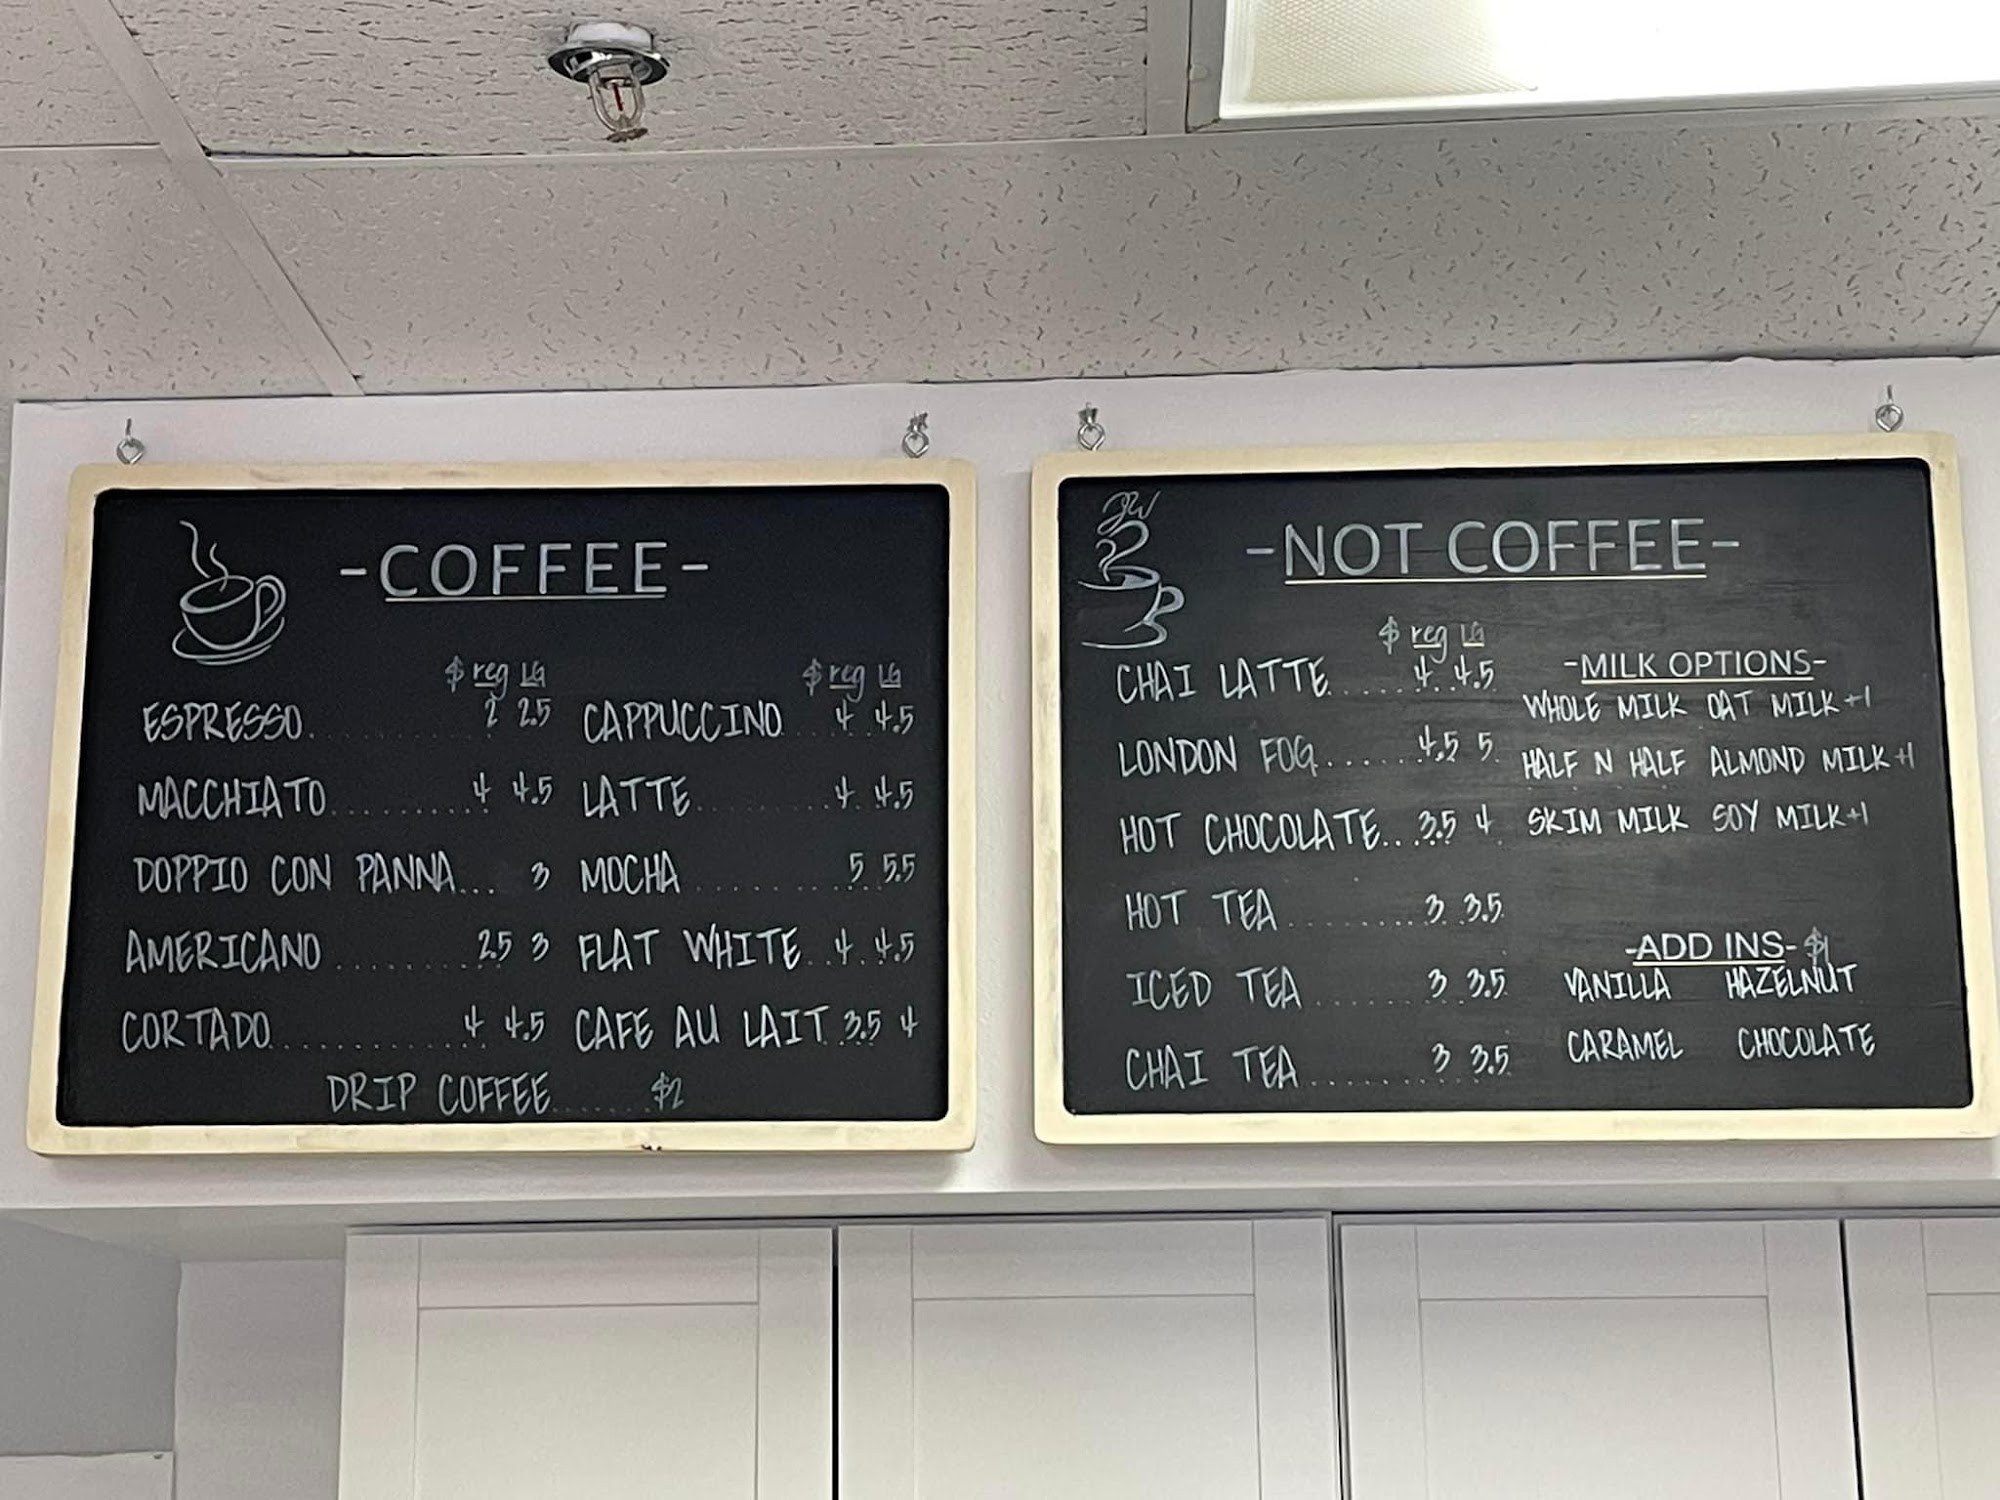 -COFFEE-
$ reg LG
ESPRESSO 2 2.5
MACCHIATO 4 4.5
DOPPIO CON PANNA... 3
AMERICANO 2.5 3
CORTADO 4 4.5
$ reg LG
CAPPUCCINO 4 4.5
LATTE 4 4.5
MOCHA 5 5.5
FLAT WHITE 4 4.5
CAFE AU LAIT 3.5 4
DRIP COFFEE $2
-NOT COFFEE-
$ reg LG
CHAI LATTE 4 4.5
LONDON FOG 4.5 5
HOT CHOCOLATE 3.5 4
HOT TEA 3 3.5
ICED TEA 3 3.5
CHAI TEA 3 3.5
-MILK OPTIONS-
WHOLE MILK OAT MILK +1
HALF N HALF ALMOND MILK +1
SKIM MILK SOY MILK +1
-ADD INS- $1
VANILLA HAZELNUT
CARAMEL CHOCOLATE